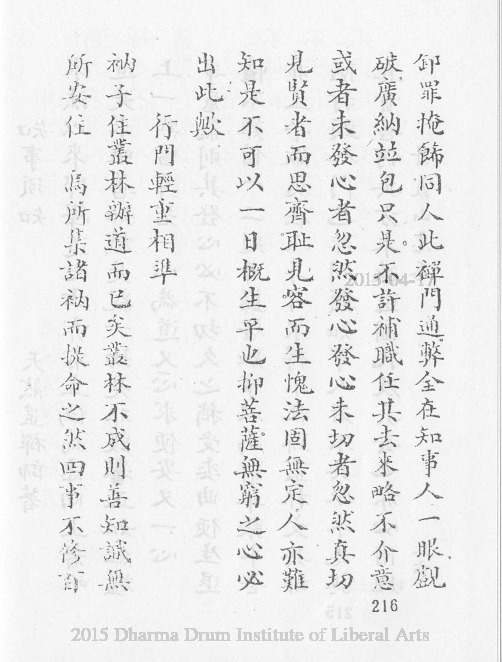 卸罪掩飾同人此禪門通弊全在知事人一眼覷
破廣納並包只是不許補職任其去來略不介意
或者未發心者忽然發心發心未切者忽然真切
見賢者而思齊恥見容而生愧法固無定人亦難
知是不可以一日概生平也抑菩薩無窮之心必
出此歟
一行門輕重相準
衲子住叢林辦道而已矣叢林不成則善知識無
所安住 焉所集諸衲而提命之然四事不修百
216
2013-04-17
2015 Dharma Drum Institute of Liberal Arts